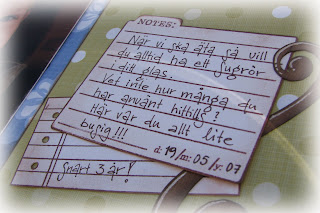 NOTES:
När vi ska äta så vill
du alltid ha ett sugrör
i ditt glas.
Vet inte hur många du
har använt hittills?
Här var du allt lite
busig!!!
d: 19/m: 05/y: 07
Snart 3 år!